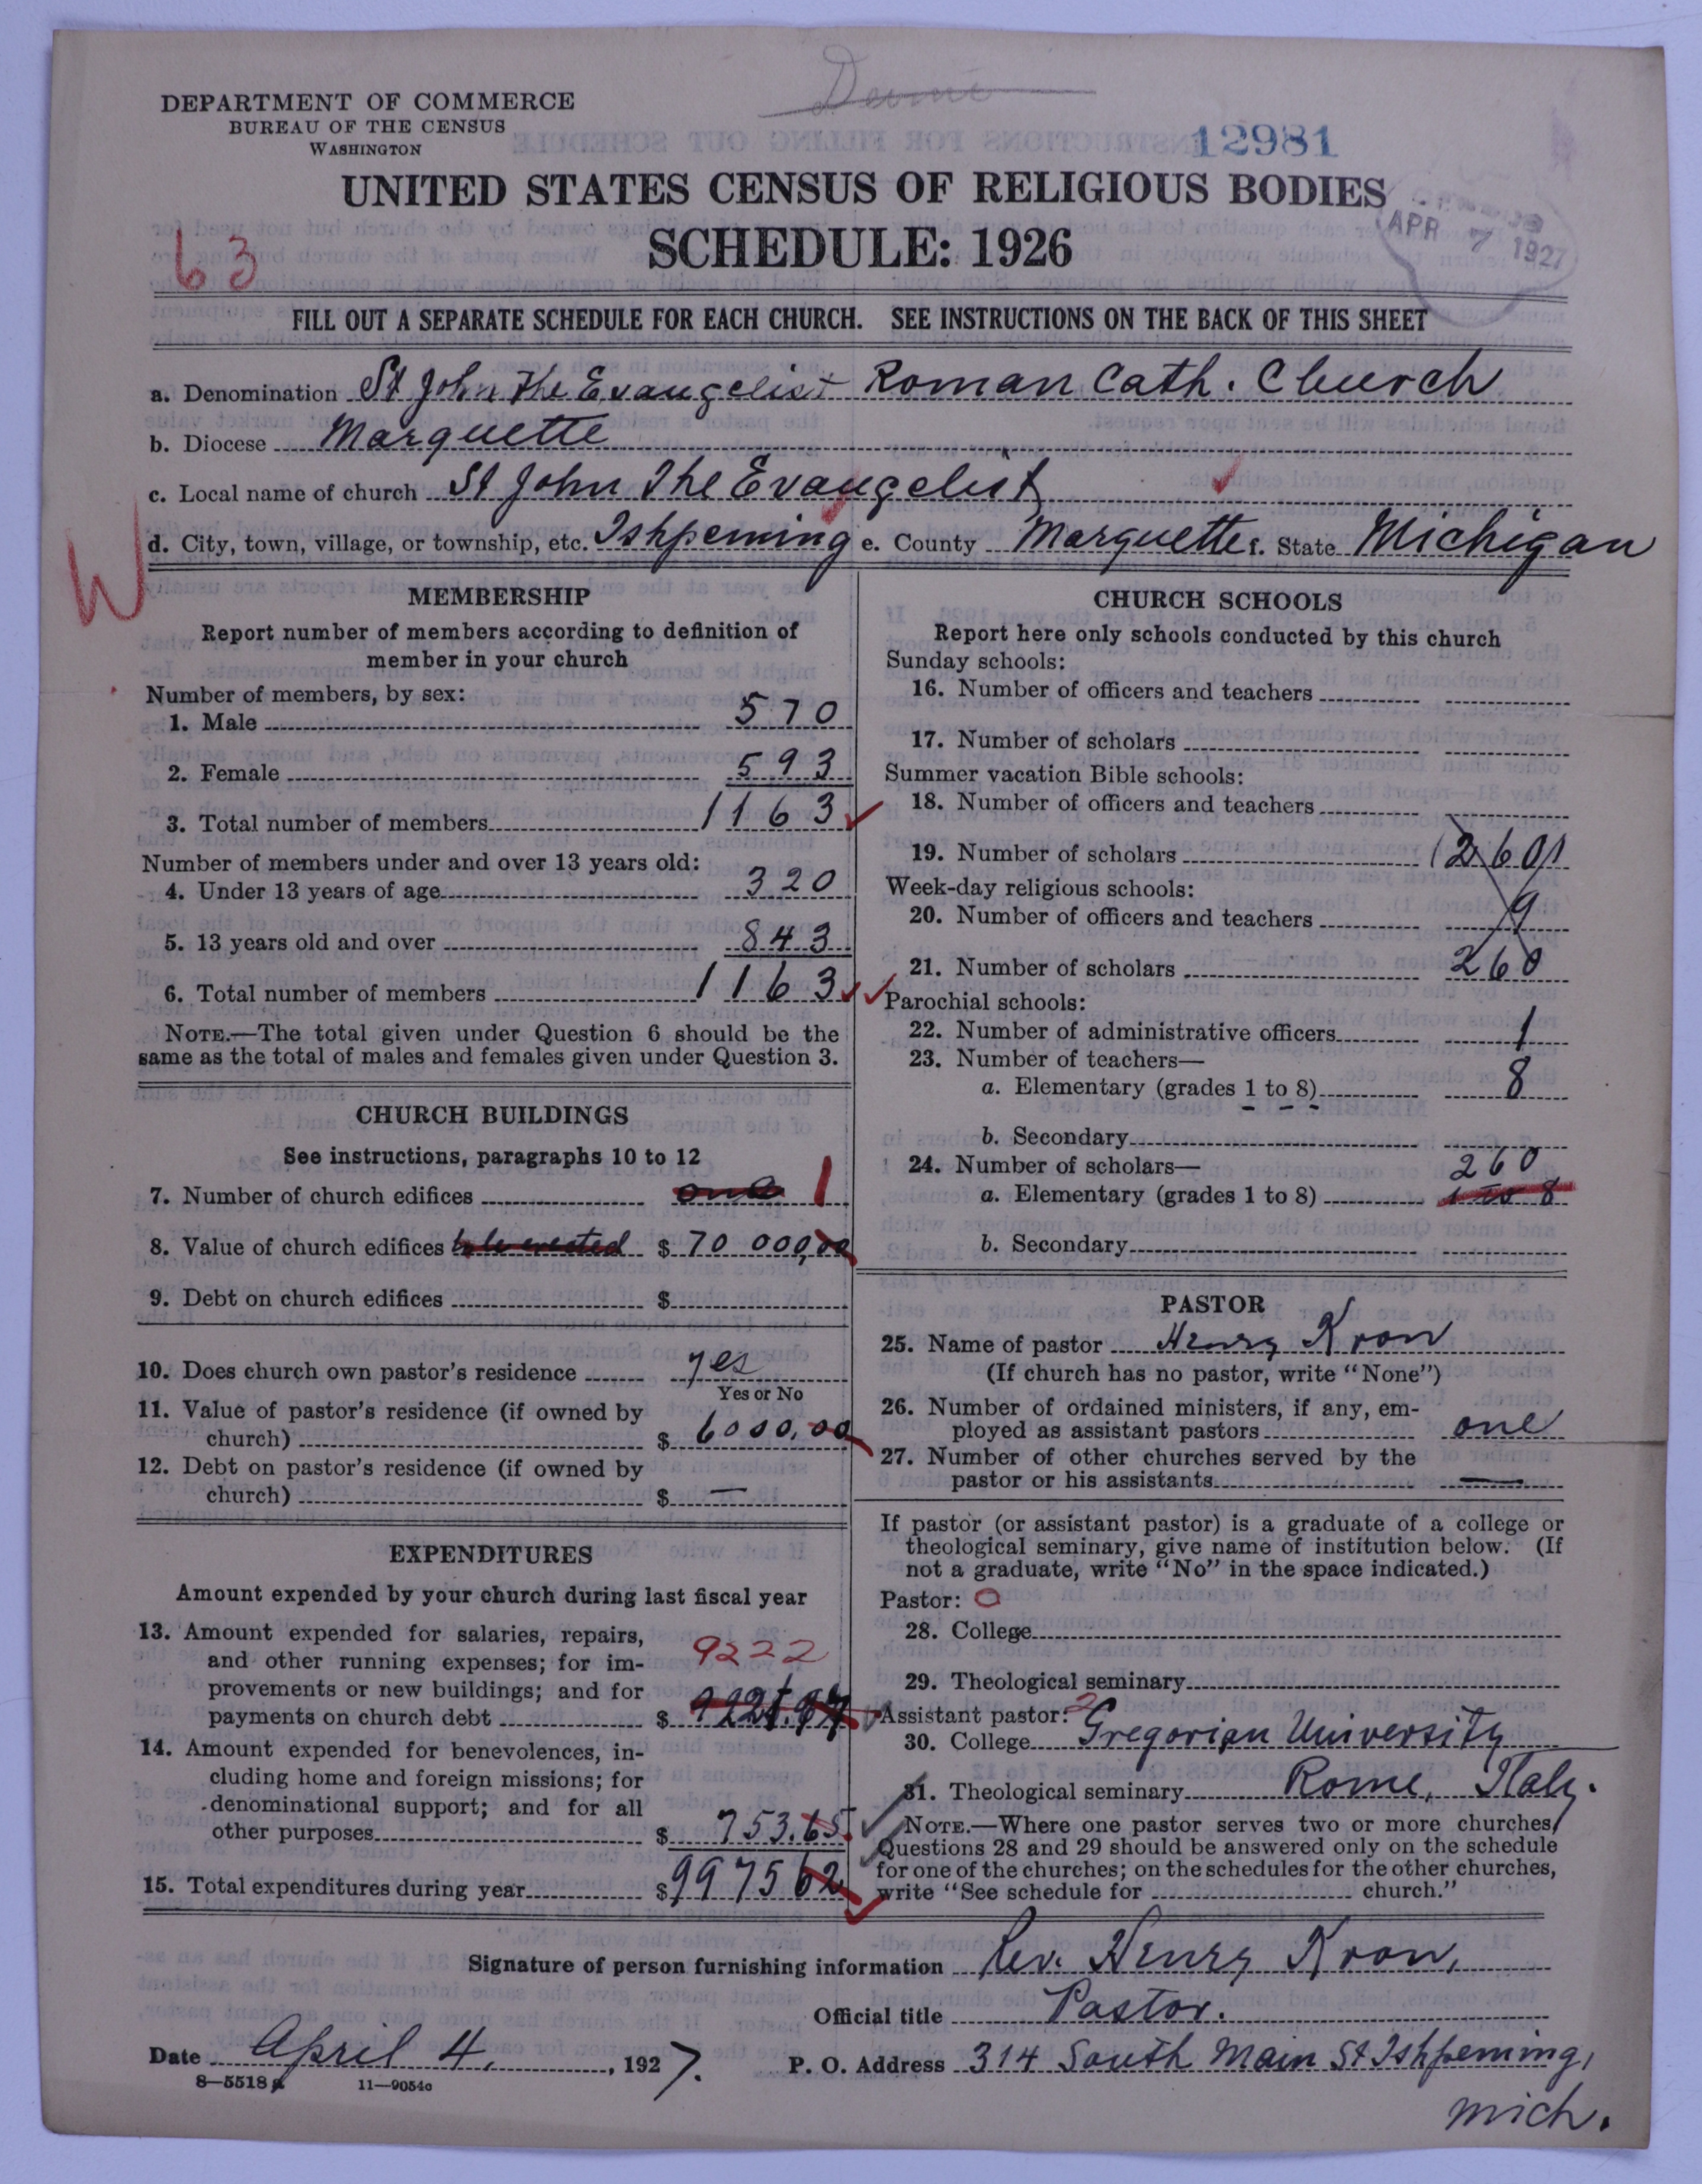 DEPARTMENT OF COMMERCE
BUREAU OF THE CENSUS
WASHINGTON
12981
UNITED STATES CENSUS OF RELIGIOUS BODIES
SCHEDULE: 1926
APR 7 1927
63
FILL OUT A SEPARATE SCHEDULE FOR EACH CHURCH. SEE INSTRUCTIONS ON THE BACK OF THIS SHEET
a. Denomination St John The Evangelist Roman Cath. Church
b. Diocese Marquette
c. Local name of church St John The Evangelist
d. City, town, village, or township, etc. Ishpeming e. County Marquette f. State Michigan
W
MEMBERSHIP
Report number of members according to definition of
member in your church
Number of members, by sex:
1. Male 570
2. Female 593
3. Total number of members 1163
Number of members under and over 13 years old:
4. Under 13 years of age 320
5. 13 years old and over 843
6. Total number of members 1163
NOTE.—The total given under Question 6 should be the
same as the total of males and females given under Question 3.
CHURCH BUILDINGS
See instructions, paragraphs 10 to 12
7. Number of church edifices one 1
8. Value of church edifices to be erected $ 70 000,00
9. Debt on church edifices $
10. Does church own pastor's residence yes
Yes or No
11. Value of pastor's residence (if owned by
church) $ 6000,00
12. Debt on pastor's residence (if owned by
church) $ —
EXPENDITURES
Amount expended by your church during last fiscal year
13. Amount expended for salaries, repairs,
and other running expenses; for im-
provements or new buildings; and for
payments on church debt $ 9222
9221.97
14. Amount expended for benevolences, in-
cluding home and foreign missions; for
denominational support; and for all
other purposes $ 753.65
15. Total expenditures during year $ 9975 62
CHURCH SCHOOLS
Report here only schools conducted by this church
Sunday schools:
16. Number of officers and teachers
17. Number of scholars
Summer vacation Bible schools:
18. Number of officers and teachers
19. Number of scholars (260)
Week-day religious schools:
20. Number of officers and teachers 9
21. Number of scholars 260
Parochial schools:
22. Number of administrative officers 1
23. Number of teachers—
a. Elementary (grades 1 to 8) 8
b. Secondary
24. Number of scholars— 260
a. Elementary (grades 1 to 8) 1 to 8
b. Secondary
PASTOR
25. Name of pastor Henry Kron
(If church has no pastor, write "None")
26. Number of ordained ministers, if any, em-
ployed as assistant pastors one
27. Number of other churches served by the
pastor or his assistants —
If pastor (or assistant pastor) is a graduate of a college or
theological seminary, give name of institution below. (If
not a graduate, write "No" in the space indicated.)
Pastor: O
28. College
29. Theological seminary
Assistant pastor: 2
30. College Gregorian University
31. Theological seminary Rome, Italy.
NOTE.—Where one pastor serves two or more churches,
Questions 28 and 29 should be answered only on the schedule
for one of the churches; on the schedules for the other churches,
write "See schedule for church."
Signature of person furnishing information Rev. Henry Kron,
Official title Pastor.
Date April 4, 1927. P. O. Address 314 South Main St Ishpeming,
Mich.
8—5518 a 11—9054c